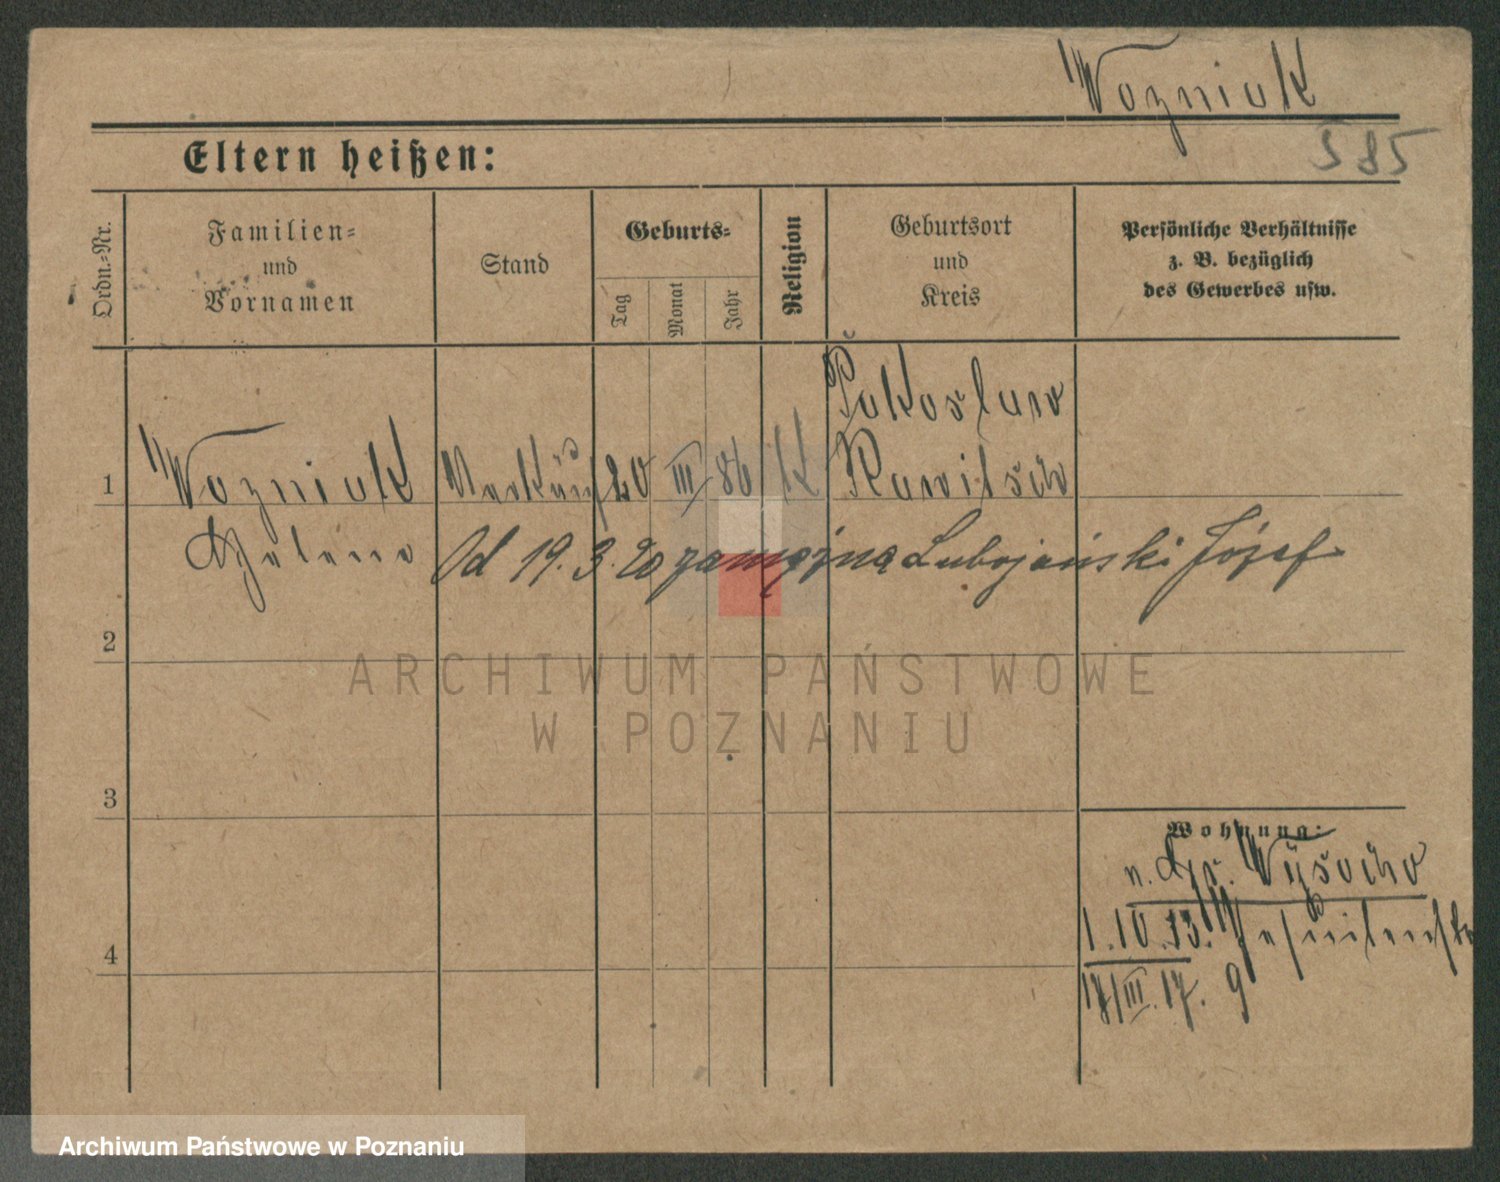 Wozniak
585
Eltern heißen:
Ordn.-Nr.
Familien-
und
Vornamen
Stand
Geburts-
Tag
Monat
Jahr
Religion
Geburtsort
und
Kreis
Persönliche Verhältnisse
z. B. bezüglich
des Gewerbes usw.
Pakoslaw
1 Wozniak Verkäuf 20 III 86 K Rawitsch
Helene Od 19.3.20 zamężna Lubojański Józef
2
ARCHIWUM PAŃSTWOWE
W POZNANIU
3
Wohnung:
n. Wysocka
1.10.13.
4
III. 17. 9
Archiwum Państwowe w Poznaniu